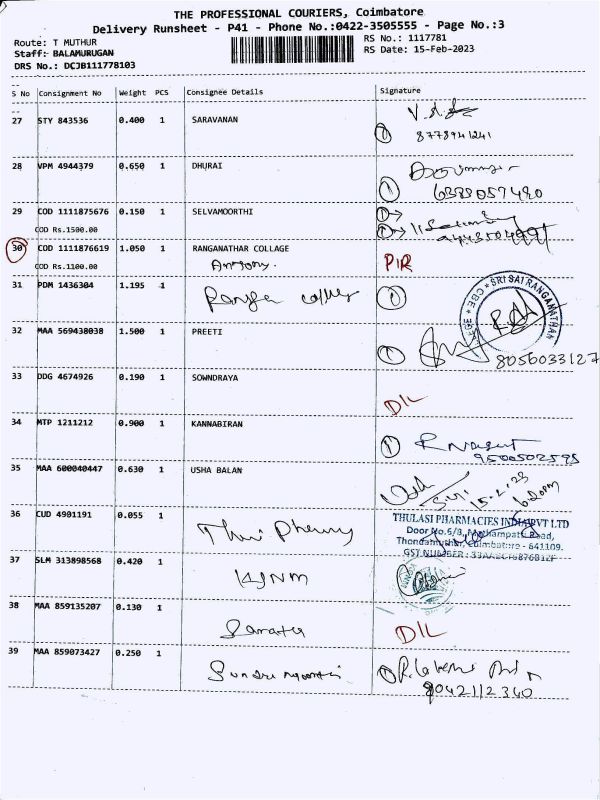 THE PROFESSIONAL COURIERS, Coimbatore
Delivery Runsheet - P41 - Phone No.:0422-3505555 - Page No.:3
Route: T MUTHUR
RS No.: 1117781
Staff: BALAMURUGAN
RS Date: 15-Feb-2023
DRS No.: DCJB111778103
S No Consignment No Weight PCS Consignee Details Signature
27 STY 843536 0.400 1 SARAVANAN
8778941241
28 VPM 4944379 0.650 1 DHURAI
6383057420
29 COD 1111875676 0.150 1 SELVAMOORTHI
COD Rs.1500.00
30 COD 1111876619 1.050 1 RANGANATHAR COLLAGE
COD Rs.1100.00 Antony.
31 PDM 1436304 1.195 1
SRI SAI RANGANATHAN
32 MAA 569438038 1.500 1 PREETI
8056033127
33 DDG 4674926 0.190 1 SOWNDRAYA
D/L
34 MTP 1211212 0.900 1 KANNABIRAN
9500502595
35 MAA 600040447 0.630 1 USHA BALAN
15.2.23
6.20pm
36 CUD 4901191 0.055 1
THULASI PHARMACIES INDIA PVT LTD
Door No.5/8,
Coimbatore - 641109.
GST NUMBER :
37 SLM 313898568 0.420 1
KJNM
38 MAA 859135207 0.130 1
D/L
39 MAA 859073427 0.250 1
9042112340